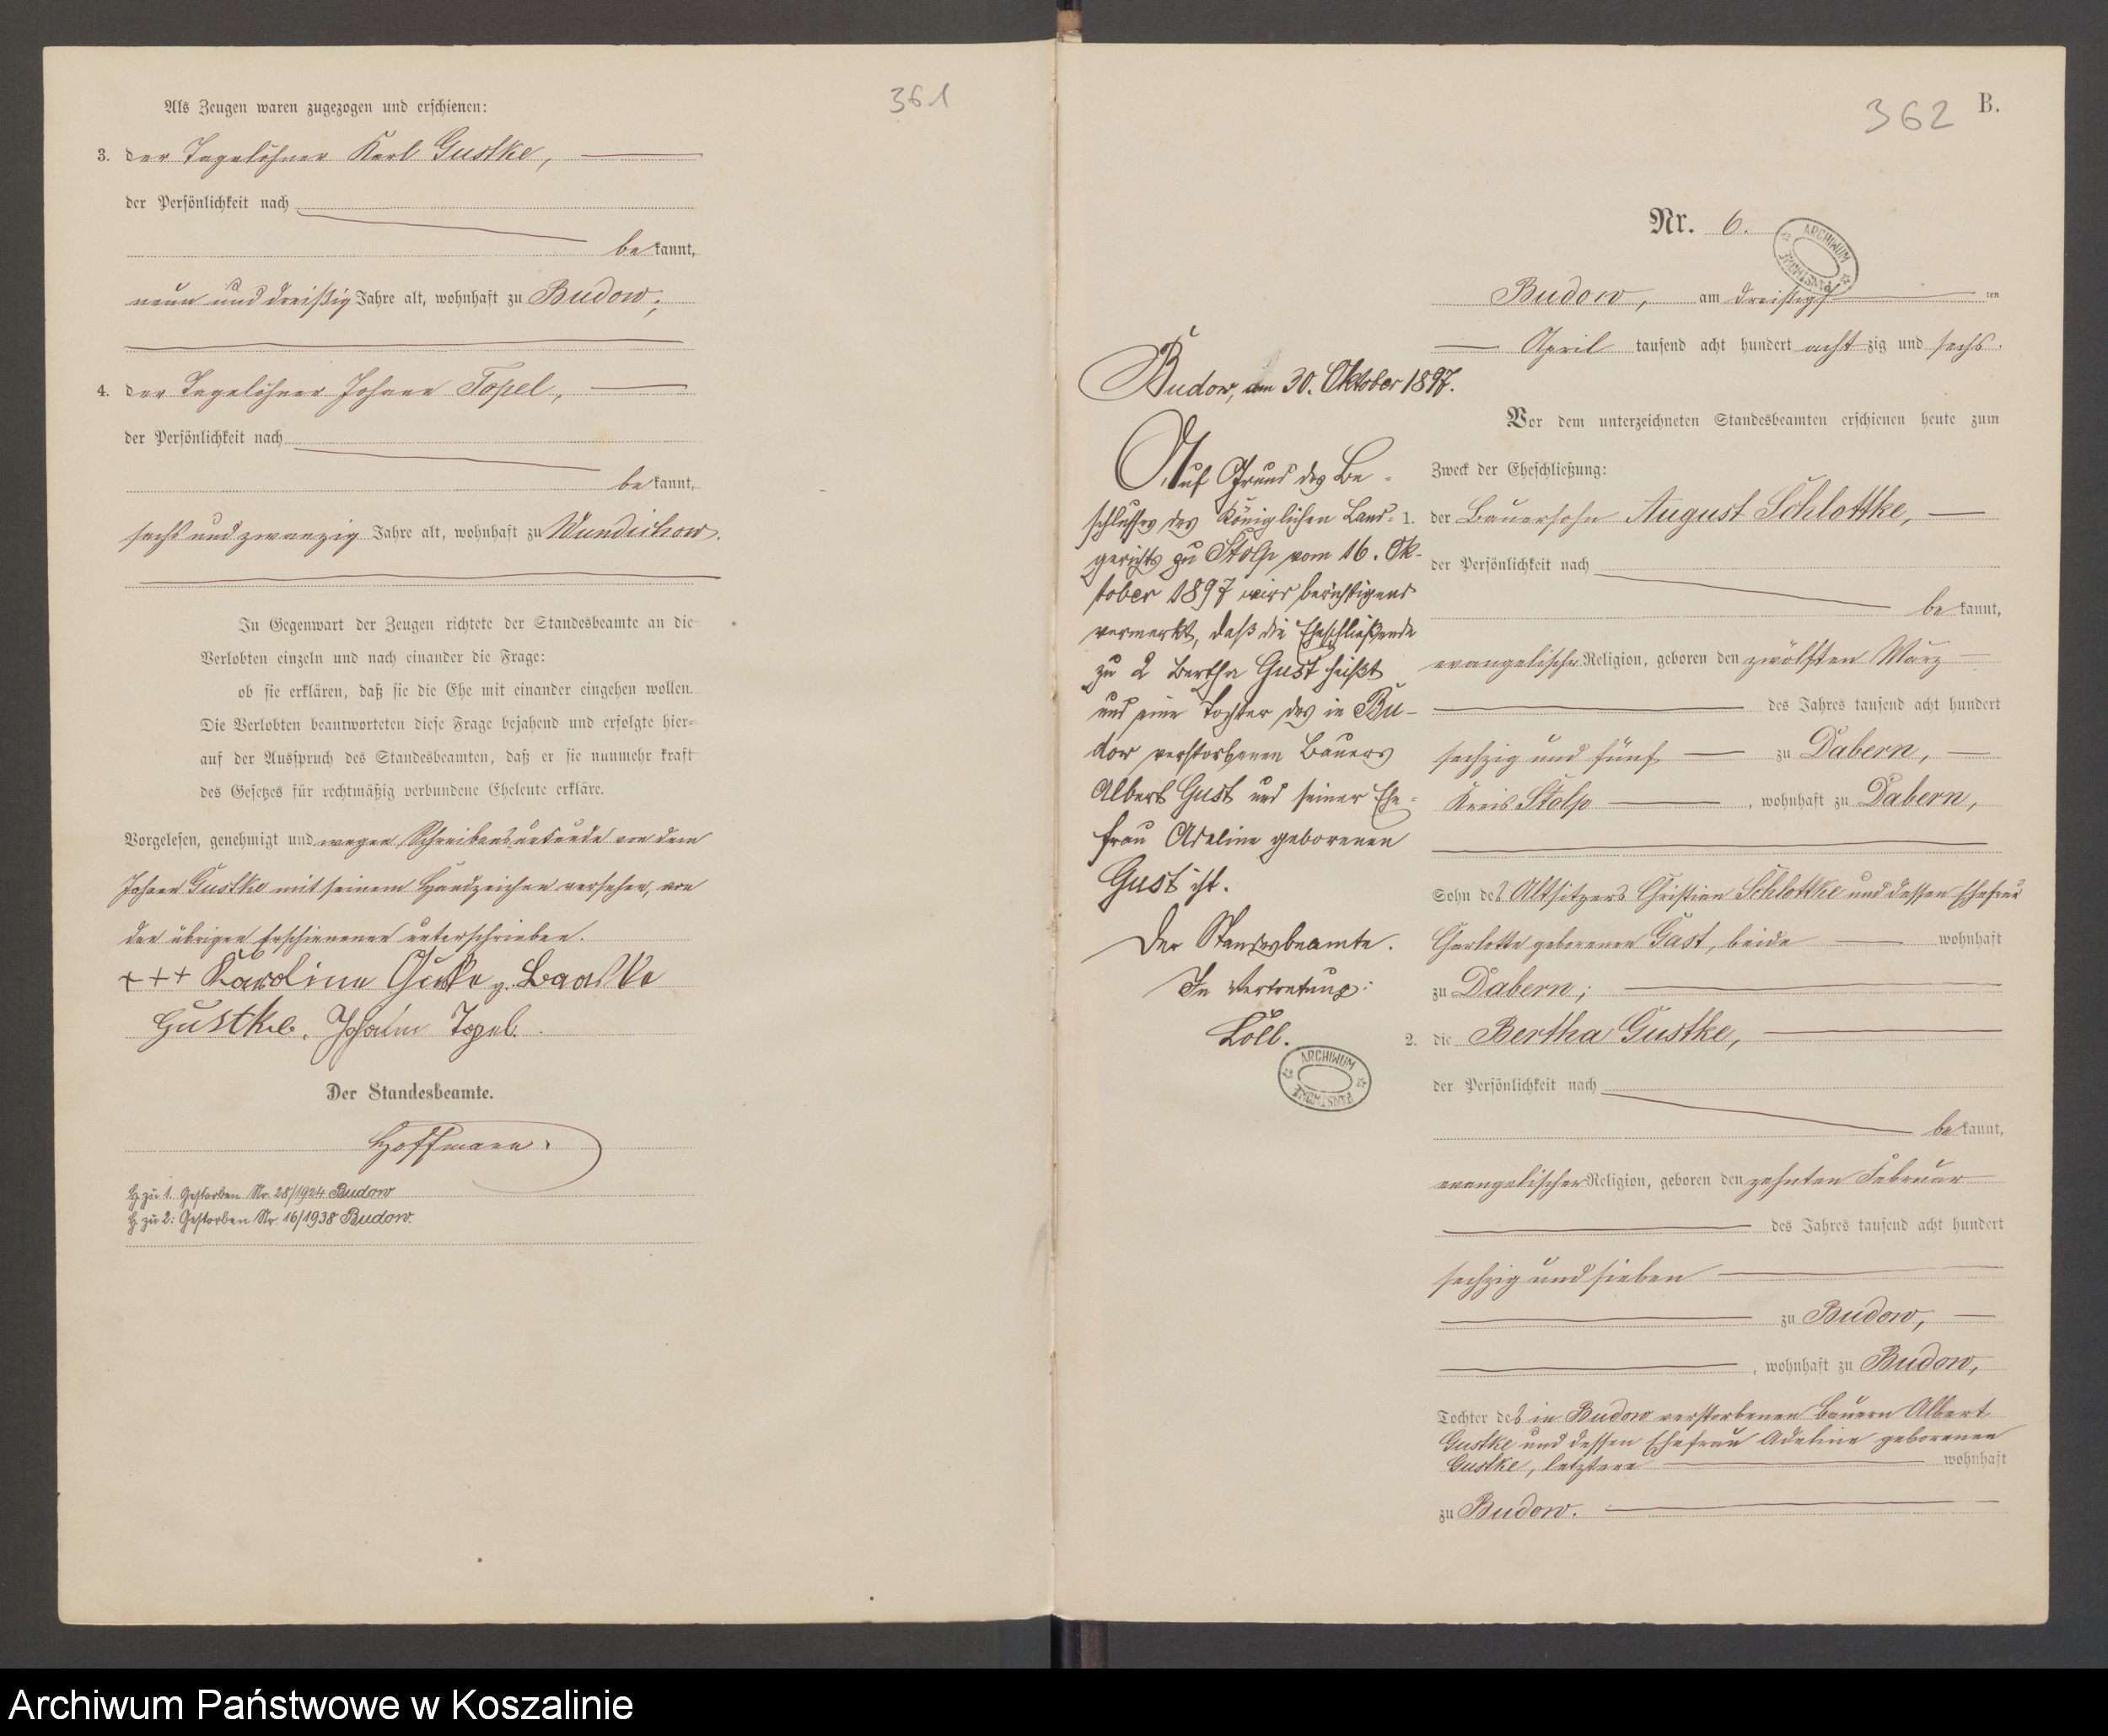 361
Als Zeugen waren zugezogen und erschienen:
3. der Tagelöhner Karl Gustke,
der Persönlichkeit nach
be kannt,
neun und dreißig Jahre alt, wohnhaft zu Budow,
4. der Tagelöhner Johann Topel,
der Persönlichkeit nach
be kannt,
sechs und zwanzig Jahre alt, wohnhaft zu Wundichow.
In Gegenwart der Zeugen richtete der Standesbeamte an die
Verlobten einzeln und nach einander die Frage:
ob sie erklären, daß sie die Ehe mit einander eingehen wollen.
Die Verlobten beantworteten diese Frage bejahend und erfolgte hier-
auf der Ausspruch des Standesbeamten, daß er sie nunmehr kraft
des Gesetzes für rechtmäßig verbundene Eheleute erkläre.
Vorgelesen, genehmigt und wegen Schreibensunkunde von dem
Johann Gustke mit seinem Handzeichen versehen, von
den übrigen Erschienenen unterschrieben.
+++ Karoline Gustke g. Baaske
Gustke. Johann Topel.
Der Standesbeamte.
Hoffmann.
H. zu 1. Gestorben Nr. 28/1924 Budow
H. zu 2: Gestorben Nr. 16/1938 Budow.
362
B.
Nr. 6.
ARCHIWUM PAŃSTWOWE
Budow, am dreißigsten
April tausend acht hundert acht zig und sechs.
Vor dem unterzeichneten Standesbeamten erschienen heute zum
Zweck der Eheschließung:
1. der Bauersohn August Schlottke,
der Persönlichkeit nach
be kannt,
evangelischer Religion, geboren den zwölften März
des Jahres tausend acht hundert
sechzig und fünf zu Dabern,
Kreis Stolp, wohnhaft zu Dabern,
Sohn des Altsitzers Christian Schlottke und dessen Ehefrau
Charlotte geborenen Gast, beide wohnhaft
zu Dabern;
2. die Bertha Gustke,
der Persönlichkeit nach
be kannt,
evangelischer Religion, geboren den zehnten Februar
des Jahres tausend acht hundert
sechzig und sieben
zu Budow,
, wohnhaft zu Budow,
Tochter des in Budow verstorbenen Bauern Albert
Gustke und dessen Ehefrau Adeline geborenen
Gustke, letztere wohnhaft
zu Budow.
Budow, am 30. Oktober 1897.
Auf Grund des Be-
schlusses des Königlichen Land-
gerichts zu Stolp vom 16. Ok-
tober 1897 wird berichtigend
vermerkt, daß die Eheschließende
zu 2 Bertha Gust heißt
und eine Tochter des in Bu-
dow verstorbenen Bauers
Albert Gust und seiner Ehe-
frau Adeline geborenen
Gust ist.
Der Standesbeamte.
In Vertretung:
Köll.
ARCHIWUM PAŃSTWOWE
Archiwum Państwowe w Koszalinie